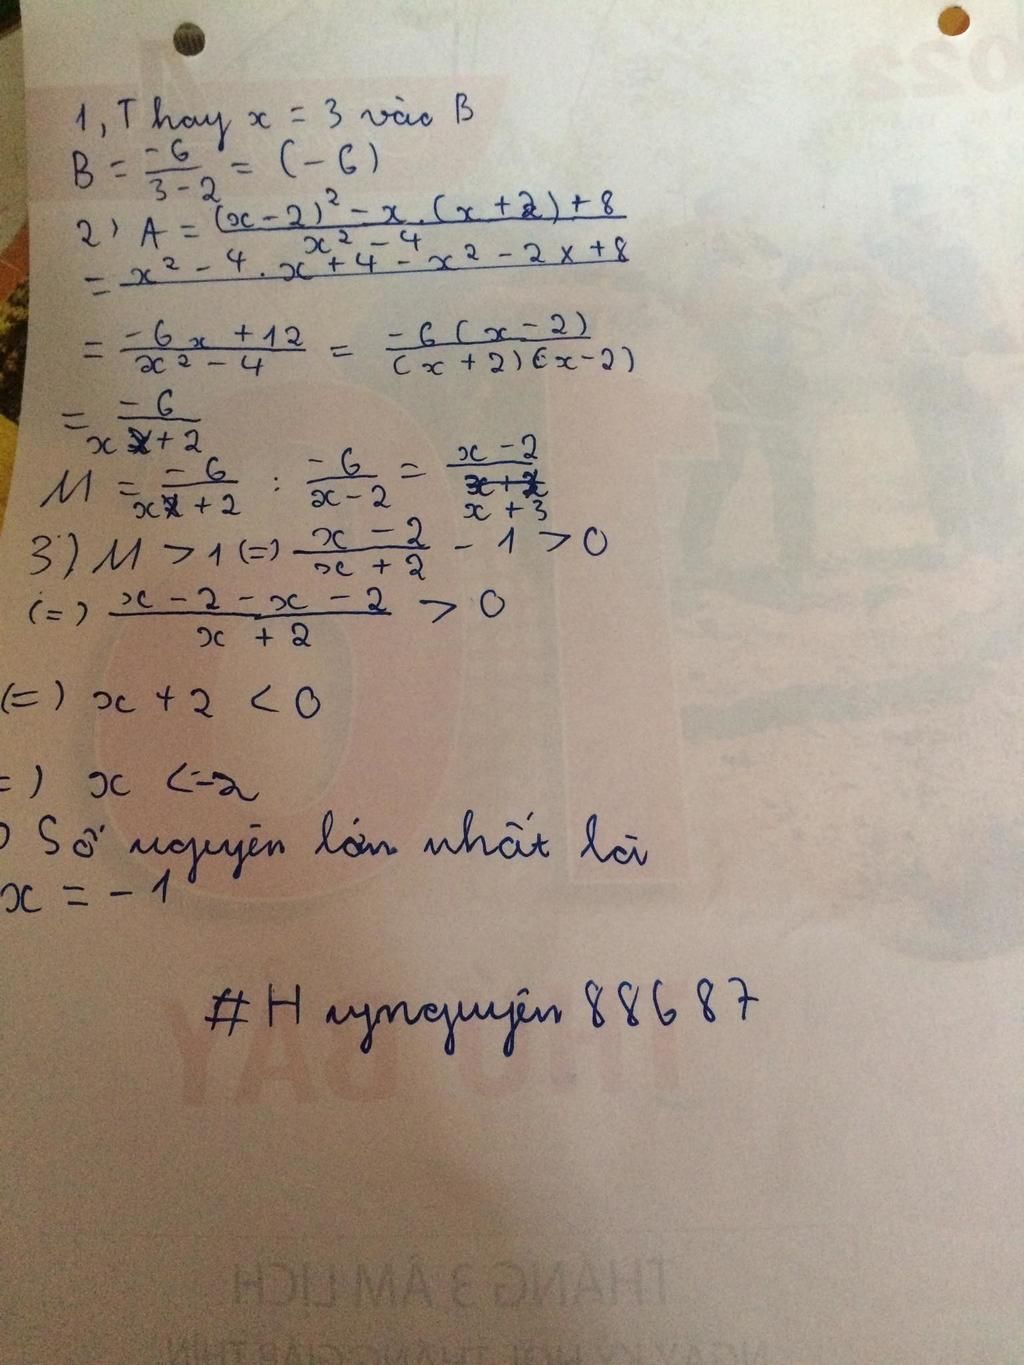 1, Thay x = 3 vào B
B = \frac{-6}{3-2} = (-6)
2) A = \frac{(x-2)^2 - x.(x+2)+8}{x^2-4}
= x^2 - 4.x+4 - x^2 - 2x+8
= \frac{-6x+12}{x^2-4} = \frac{-6(x-2)}{(x+2)(x-2)}
= \frac{-6}{x+2}
M = \frac{-6}{x+2} : \frac{-6}{x-2} = \frac{x-2}{x+3}
3) M > 1 (=) \frac{x-2}{x+2} - 1 > 0
(=) \frac{x-2-x-2}{x+2} > 0
(=) x+2 < 0
=) x <-2
Số nguyên lớn nhất là
x = -1
#Huynguyên88687
022
THỨ BẢY
THÁNG 3 ÂM LỊCH